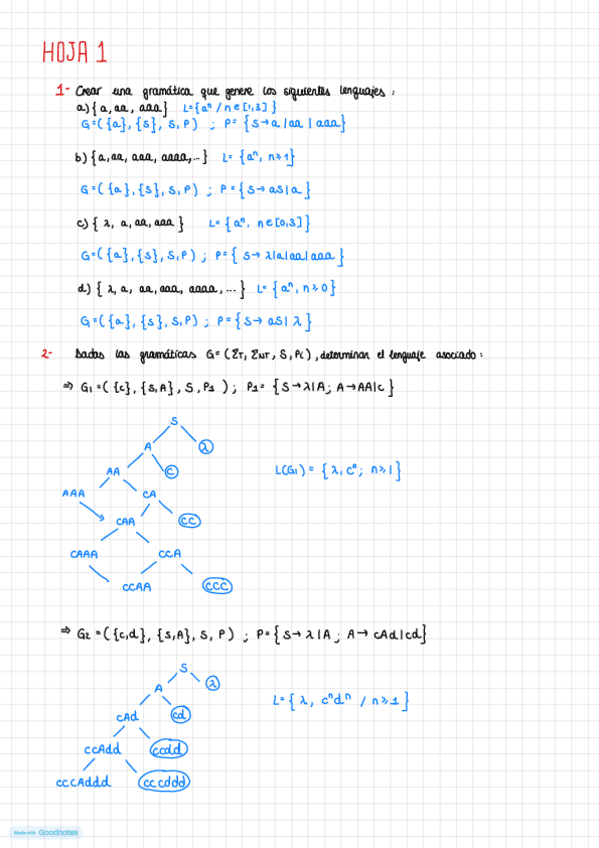 HOJA 1
1- Crear una gramática que genere los siguientes lenguajes:
a) { a, aa, aaa} L={aⁿ / n ∈ [1,3] }
G=( {a}, {S}, S, P ) ; P= { S→a | aa | aaa}
b) {a, aa, aaa, aaaa,...} L= {aⁿ, n≥1}
G=( {a}, {S}, S, P ) ; P= { S→ aS | a }
c) { λ, a, aa, aaa } L= { aⁿ, n∈[0,3] }
G=( {a}, {S}, S, P ) ; P= { S→ λ|a|aa|aaa }
d) { λ, a, aa, aaa, aaaa, ... } L= { aⁿ, n≥0 }
G=( {a}, {S}, S, P ) ; P= { S→ aS | λ }
2- Dadas las gramáticas G= (Σ_T, Σ_NT, S, P_i), determinar el lenguaje asociado:
⇒ G₁ =( {c}, {S,A}, S, P₁ ) ; P₁ = { S→λ|A ; A→AA|c }
S
A λ
AA c
AAA CA
CAA cc
CAAA CCA
CCAA ccc
L(G₁) = { λ, cⁿ ; n≥1 }
⇒ G₂ =( {c,d}, {S,A}, S, P ) ; P= { S→ λ|A ; A→ cAd|cd}
S
A λ
cAd cd
ccAdd ccdd
cccAddd cccddd
L= { λ, cⁿdⁿ / n≥1 }
Made with Goodnotes